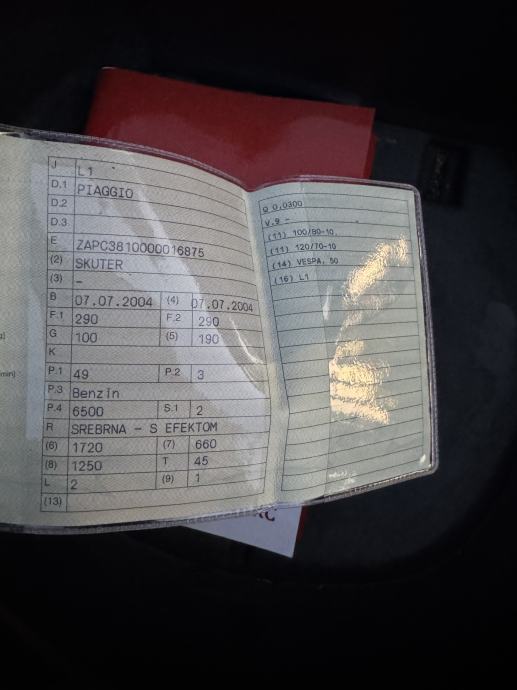 J L1
D.1 PIAGGIO
D.2
D.3
E ZAPC3810000016875
(2) SKUTER
(3) –
B 07.07.2004 (4) 07.07.2004
F.1 290 F.2 290
G 100 (5) 190
K
P.1 49 P.2 3
P.3 Benzin
P.4 6500 S.1 2
R SREBRNA – S EFEKTOM
(6) 1720 (7) 660
(8) 1250 T 45
L 2 (9) 1
(13)
Q 0,0300
V.9 –
(11) 100/80-10,
(11) 120/70-10
(14) VESPA, 50
(16) L1